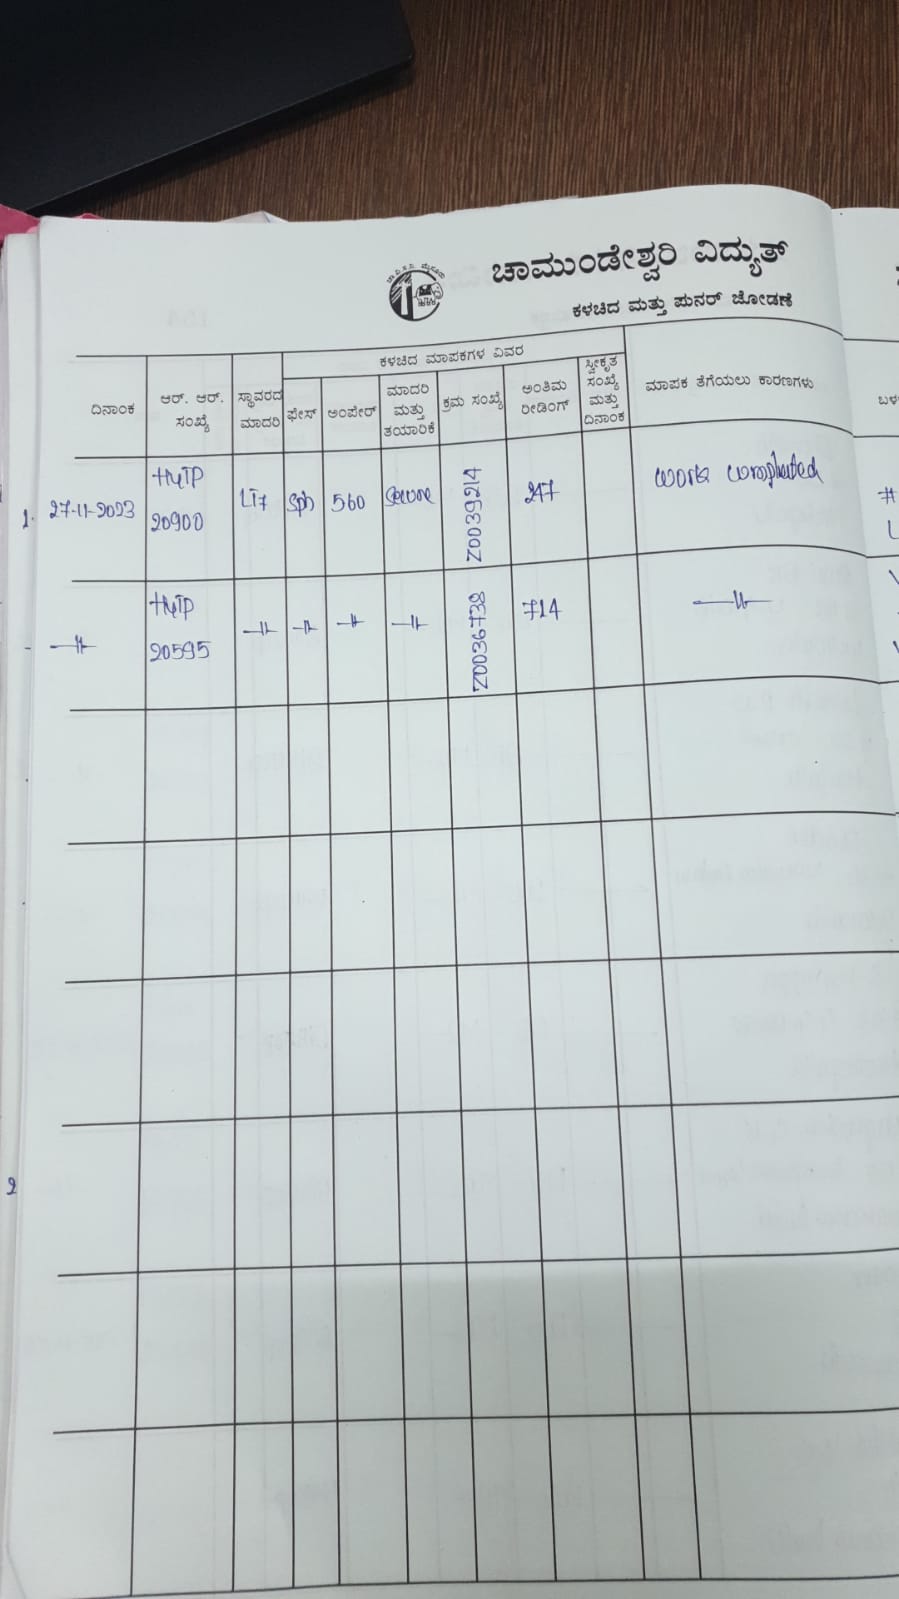 ಚಾಮುಂಡೇಶ್ವರಿ ವಿದ್ಯುತ್
ಕಳಚಿದ ಮತ್ತು ಪುನರ್ ಜೋಡಣೆ
ದಿನಾಂಕ
ಆರ್. ಆರ್. ಸಂಖ್ಯೆ
ಸ್ಥಾವರದ ಮಾದರಿ
ಕಳಚಿದ ಮಾಪಕಗಳ ವಿವರ
ಫೇಸ್
ಅಂಪೇರ್
ಮಾದರಿ ಮತ್ತು ತಯಾರಿಕೆ
ಕ್ರಮ ಸಂಖ್ಯೆ
ಅಂತಿಮ ರೀಡಿಂಗ್
ಸ್ವೀಕೃತ ಸಂಖ್ಯೆ ಮತ್ತು ದಿನಾಂಕ
ಮಾಪಕ ತೆಗೆಯಲು ಕಾರಣಗಳು
1. 27-11-2023 HYTP 20900 LT7 Sph 560 Secure Z0039214 247 work completed
HYTP 20595 Z0036738 714
2